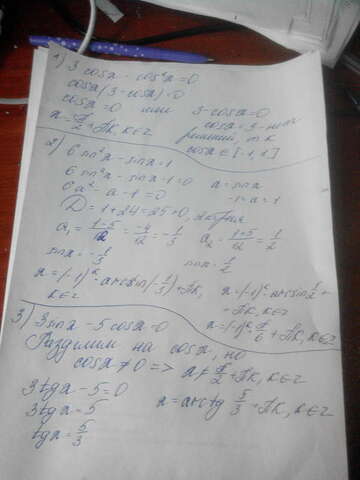 1) 3 cosx - cos²x = 0
cosx(3 - cosx) = 0
cosx = 0 или 3 - cosx = 0
x = π/2 + πk, k∈z cosx = 3 - нет
решений, т.к
cosx ∈ [-1,1]
2) 6 sin²x - sinx = 1
6 sin²x - sinx - 1 = 0 a = sinx
6a² - a - 1 = 0
D = 1 + 24 = 25 > 0, 2 корня
a₁ = (1-5)/12 = -4/12 = -1/3 a₂ = (1+5)/12 = 1/2
sinx = -1/3 sinx = 1/2
x = (-1)ᵏ · arcsin(-1/3) + πk, k∈z
x = (-1)ᵏ · arcsin 1/2 + πk, k∈z
x = (-1)ᵏ · π/6 + πk, k∈z
3) 3 sinx - 5 cosx = 0
Разделим на cosx, но
cosx ≠ 0 => x ≠ π/2 + πk, k∈z
3tgx - 5 = 0
3tgx = 5 x = arctg 5/3 + πk, k∈z
tgx = 5/3